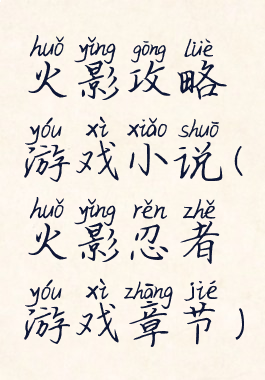 huǒ yǐng gōng lüè
火影攻略
yóu xì xiǎo shuō
游戏小说(
huǒ yǐng rěn zhě
火影忍者
yóu xì zhāng jié
游戏章节)